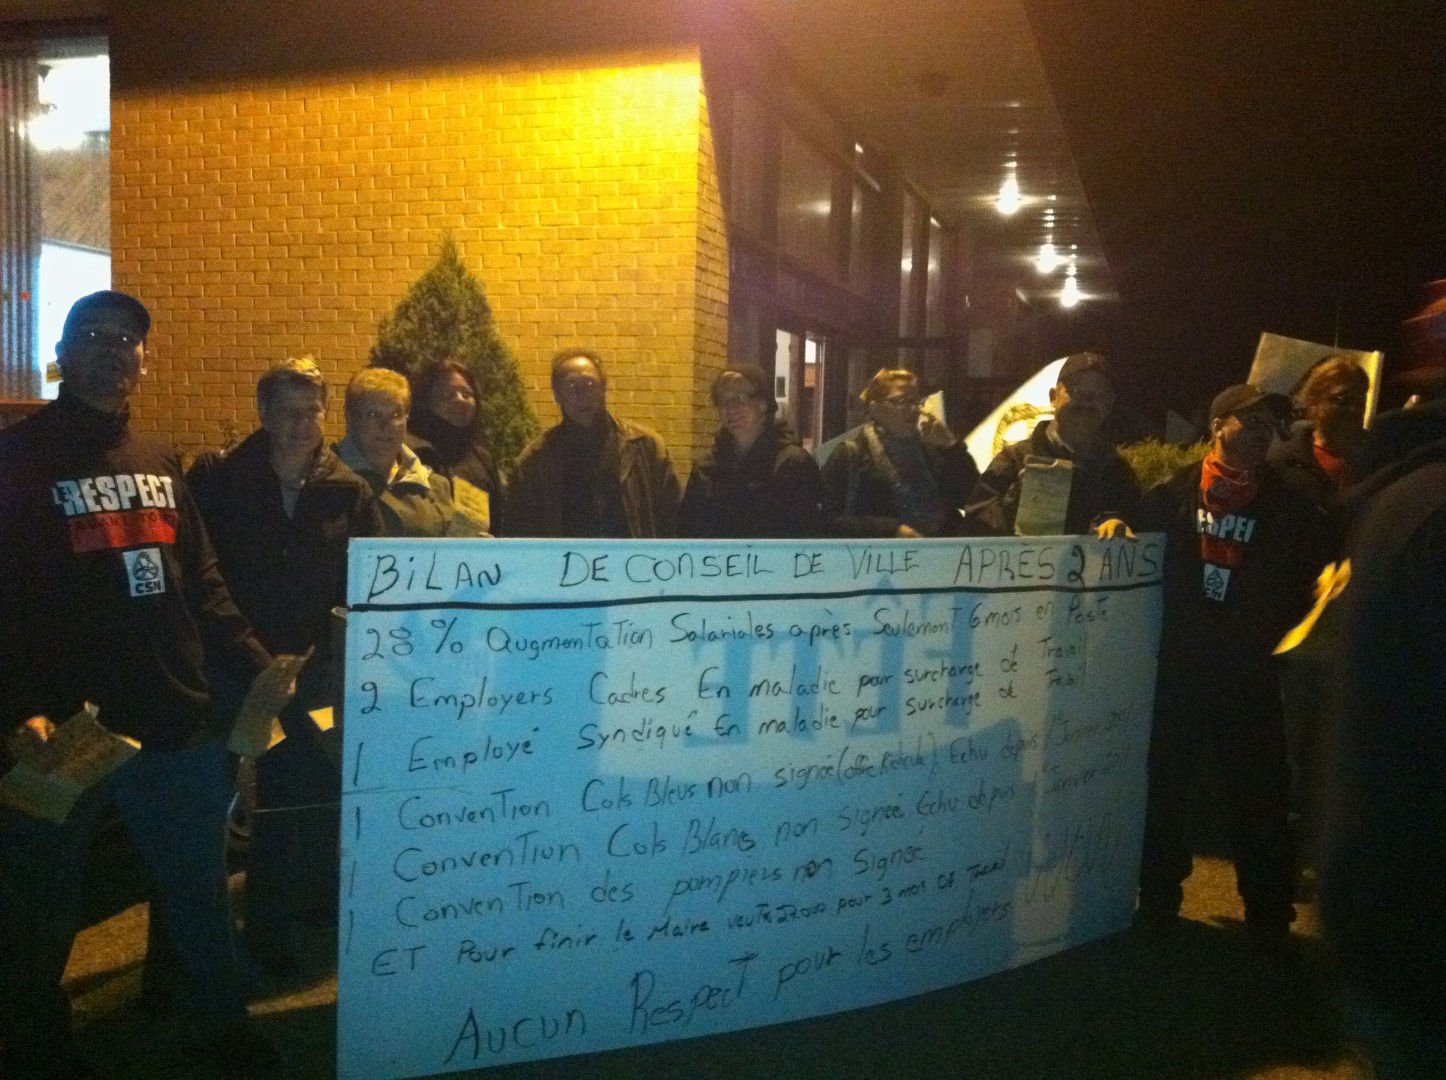 LE RESPECT
CSN
ESPEC
CSN
BiLAN DE CONSEiL DE ViLLE APRES 2 ANS
28 % AugmenTaTion Salariales après Seulement 6 mois en Poste
2 Employers Cadres En maladie pour surcharge de Travail
1 Employé Syndiqué En maladie pour surcharge de Travail
1 ConvenTion Cols Bleus non signée (offre Ridicule) Echu depuis 1er Janvier
1 ConvenTion Cols Blancs non Signée Echu depuis 1er Janvier
1 ConvenTion des pompiers non Signée
ET Pour finir le Maire veuT 27,000 pour 3 mois de Travail
Aucun RespecT pour les employers !!!!